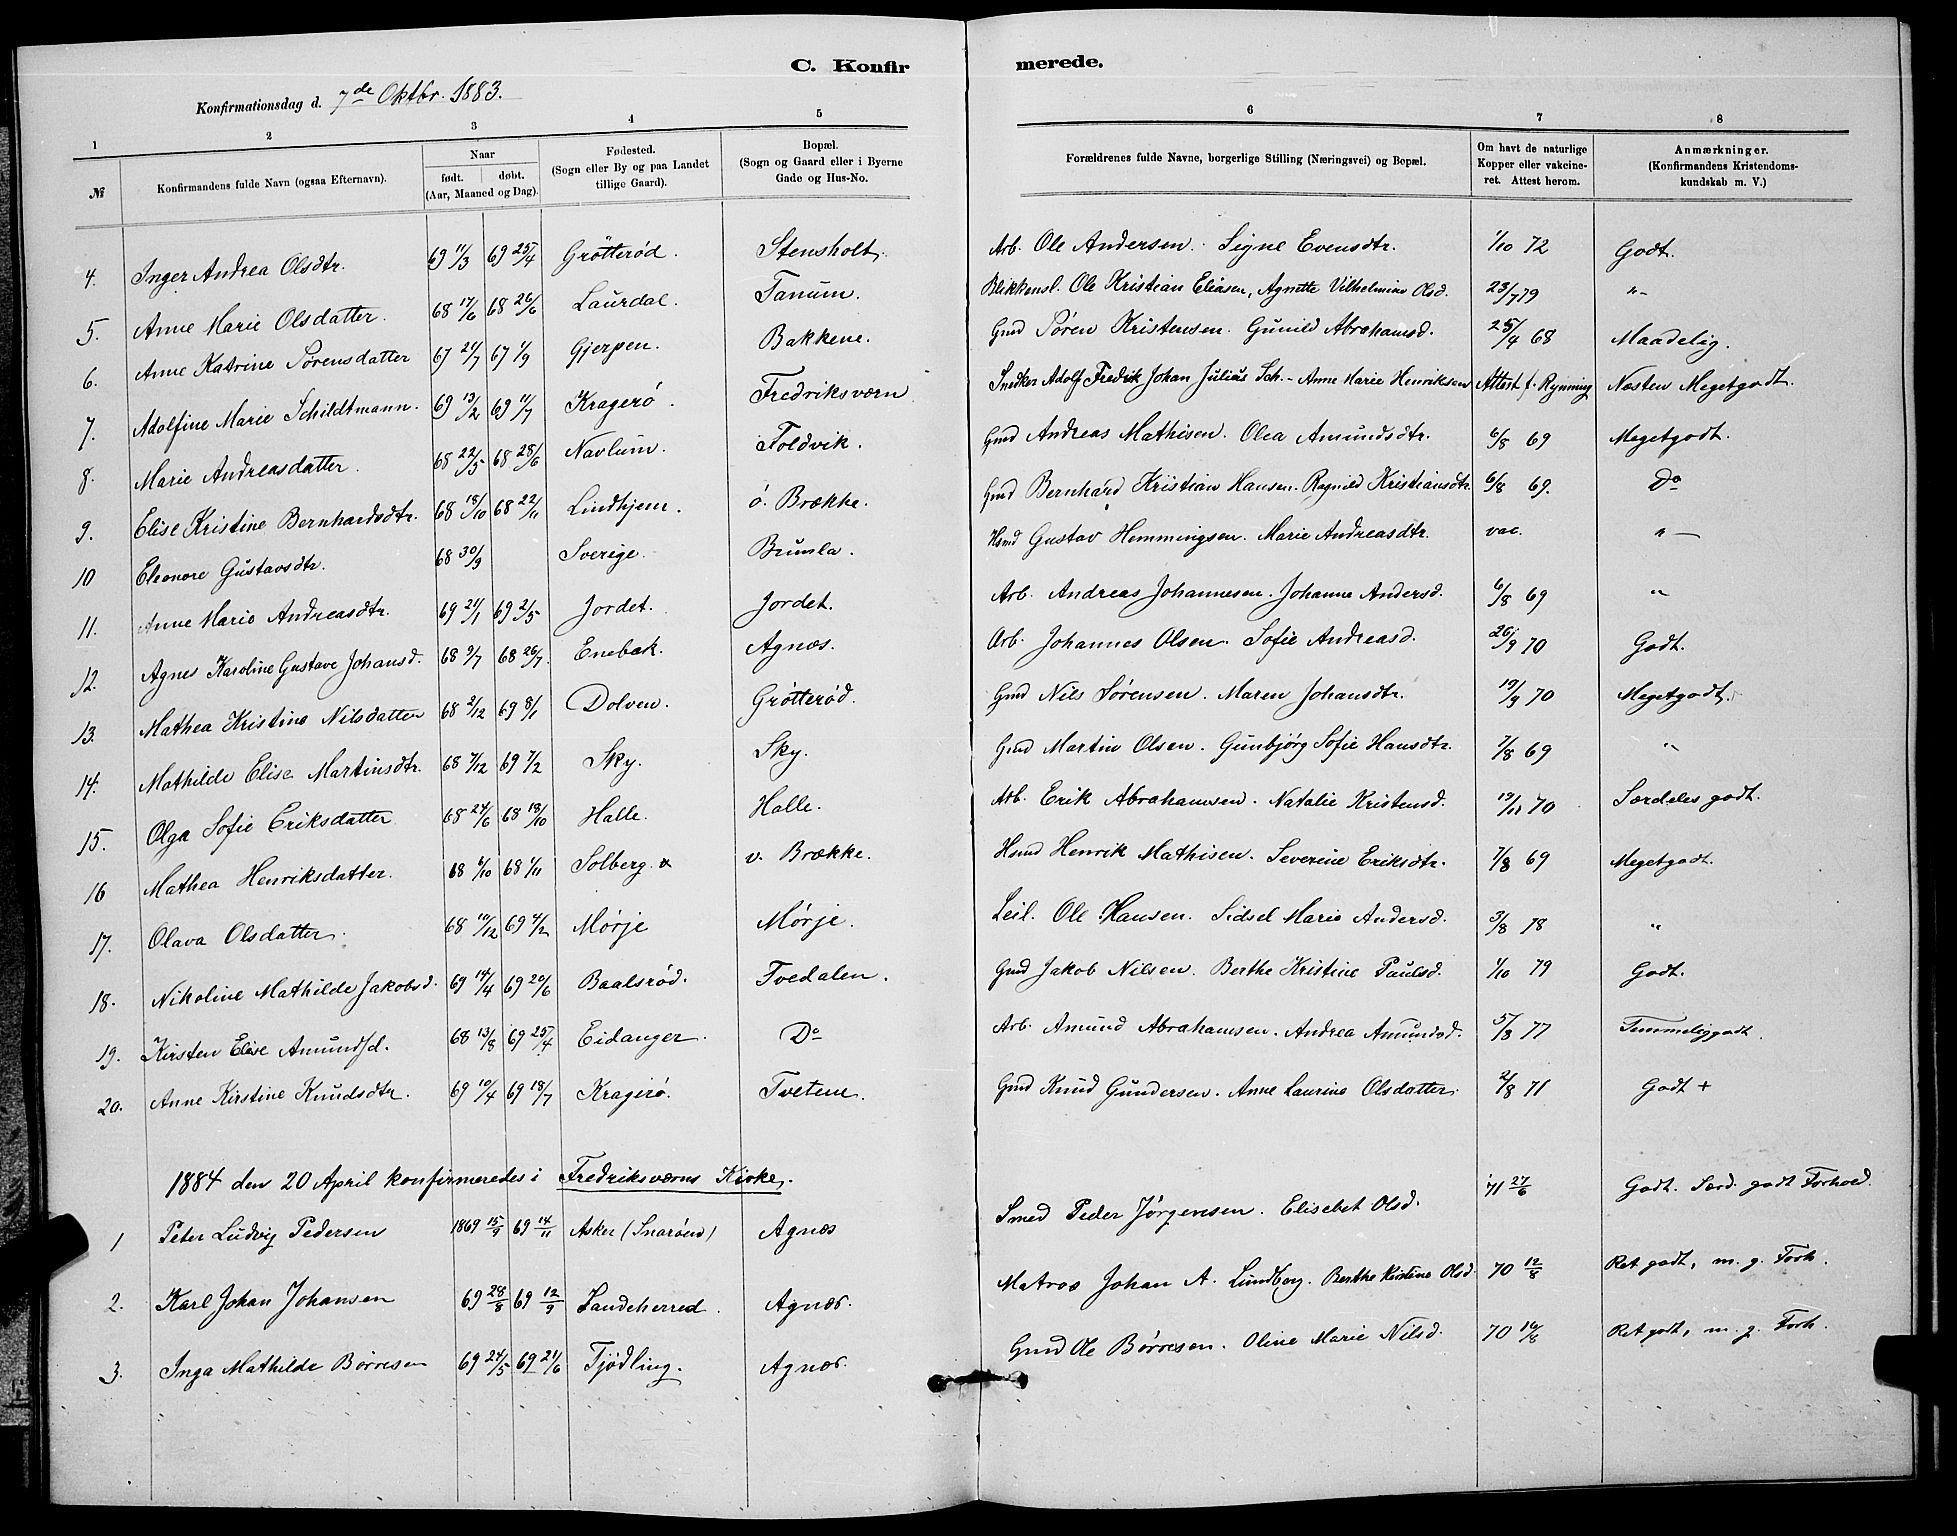 C. Konfirmerede.
Konfirmationsdag d. 7de Oktbr. 1883.
1 2 3 4 5 6 7 8
№ | Konfirmandens fulde Navn (ogsaa Efternavn). | Naar født. døbt. (Aar, Maaned og Dag). | Fødested. (Sogn eller By og paa Landet tillige Gaard). | Bopæl. (Sogn og Gaard eller i Byerne Gade og Hus-No. | Forældrenes fulde Navne, borgerlige Stilling (Næringsvei) og Bopæl. | Om havt de naturlige Kopper eller vakcineret. Attest herom. | Anmærkninger. (Konfirmandens Kristendomskundskab m. V.)
4. Inger Andrea Olsdtr. 69 11/3 69 25/4 Grötterød. Stensholt. Arb. Ole Andersen. Signe Evensdtr. 1/10 72 Godt.
5. Anne Marie Olsdatter. 68 17/6 68 26/6 Laurdal. Tanum. Blikkensl. Ole Kristian Eliesen, Agnette Vilhelmine Olsd. 23/7 79 "-
6. Anne Katrine Sørensdatter 67 21/7 67 1/9 Gjerpen. Bakkene. Gmd Søren Kristensen. Gunild Abrahamsd. 25/4 68 Maadelig.
7. Adolfine Marie Schildtmann. 69 13/2 69 11/7 Kragerö. Fredriksværn Snedker Adolf Fredrik Johan Julius Sch. - Anne Marie Henriksen Attest f. Rynning Næsten Megetgodt.
8. Marie Andreasdatter. 68 22/5 68 28/6 Navlum. Foldvik. Gmd Andreas Mathisen. Olea Amundsdtr. 6/8 69 Megetgodt.
9. Elise Kristine Bernhardsdtr. 68 18/10 68 22/11 Lindhjem. ö. Brække. Gmd Bernhard Kristian Hansen. Ragnild Kristiansdtr. 6/8 69. Do
10 Eleonore Gustavsdtr. 68 30/9 Sverige. Brunla. Hsmd Gustav Hemmingsen. Marie Andreasdtr. vac. " -
11. Anne Marie Andreasdtr. 69 21/1 69 2/5 Jordet. Jordet. Arb. Andreas Johannesen. Johanne Andersd. 6/8 69 "
12. Agnes Karoline Gustave Johansd. 68 9/7 68 26/7. Enebak. Agnæs. Arb. Johannes Olsen. Sofie Andreasd. 26/9 70 Godt.
13. Mathea Kristine Nilsdatter 68 2/12 69 8/1 Dolven. Grötterød. Gmd Nils Sörensen. Maren Johansdtr. 19/9 70 Megetgodt.
14. Mathilde Elise Martinsdtr. 68 7/12 69 7/2 Sky. Sky. Gmd Martin Olsen. Gunbjørg Sofie Hansdtr. 7/8 69 "
15. Olga Sofie Eriksdatter 68 24/6 68 18/10 Halle. Halle. Arb. Erik Abrahamsen. Natalie Kristensd. 19/11 70 Særdeles godt.
16 Mathea Henriksdatter. 68 6/10 68 1/11 Solberg. v. Brække. Hsmd Henrik Mathisen. Severine Eriksdtr. 7/8 69 Megetgodt.
17. Olava Olsdatter. 68 10/12 69 4/2 Mørje Mørje. Leil. Ole Hansen. Sidsel Marie Andersd. 3/8 78 "
18. Nikoline Mathilde Jakobsd. 69 14/4 69 20/6 Baalsrød. Tvedalen. Gmd Jakob Nilsen. Berthe Kristine Paulsd. 1/10 79 Godt.
19. Kirsten Elise Amundsd. 68 13/8 69 25/4 Eidanger. Do Arb. Amund Abrahamsen. Andrea Amundsd. 5/8 77 Temmeliggodt.
20. Anne Kirstine Knudsdtr. 69 10/4 69 18/7 Kragerö. Tvetene. Gmd Knud Gundersen. Anne Laurine Olsdatter. 2/8 71 Godt +
1884 den 20 April konfirmeredes i Fredriksværns Kirke.
1 Peter Ludvig Pedersen 1869 15/9 69 14/11 Asker (Snarøen) Agnæs Smed Peder Jørgensen. Elisebet Olsd. 71 27/6 Godt. Særd. godt Forhold.
2. Karl Johan Johansen 69 28/8 69 12/9 Sandeherred. Agnæs. Matros Johan A. Lundberg. Berthe Kristine Olsd. 70 12/8 Ret godt, m. g. Forh.
3. Inga Mathilde Børresen 69 24/5 69 21/6 Tjødling. Agnæs. Gmd Ole Børresen. Oline Marie Nilsd. 70 16/8 Ret godt, m. g. Forh.